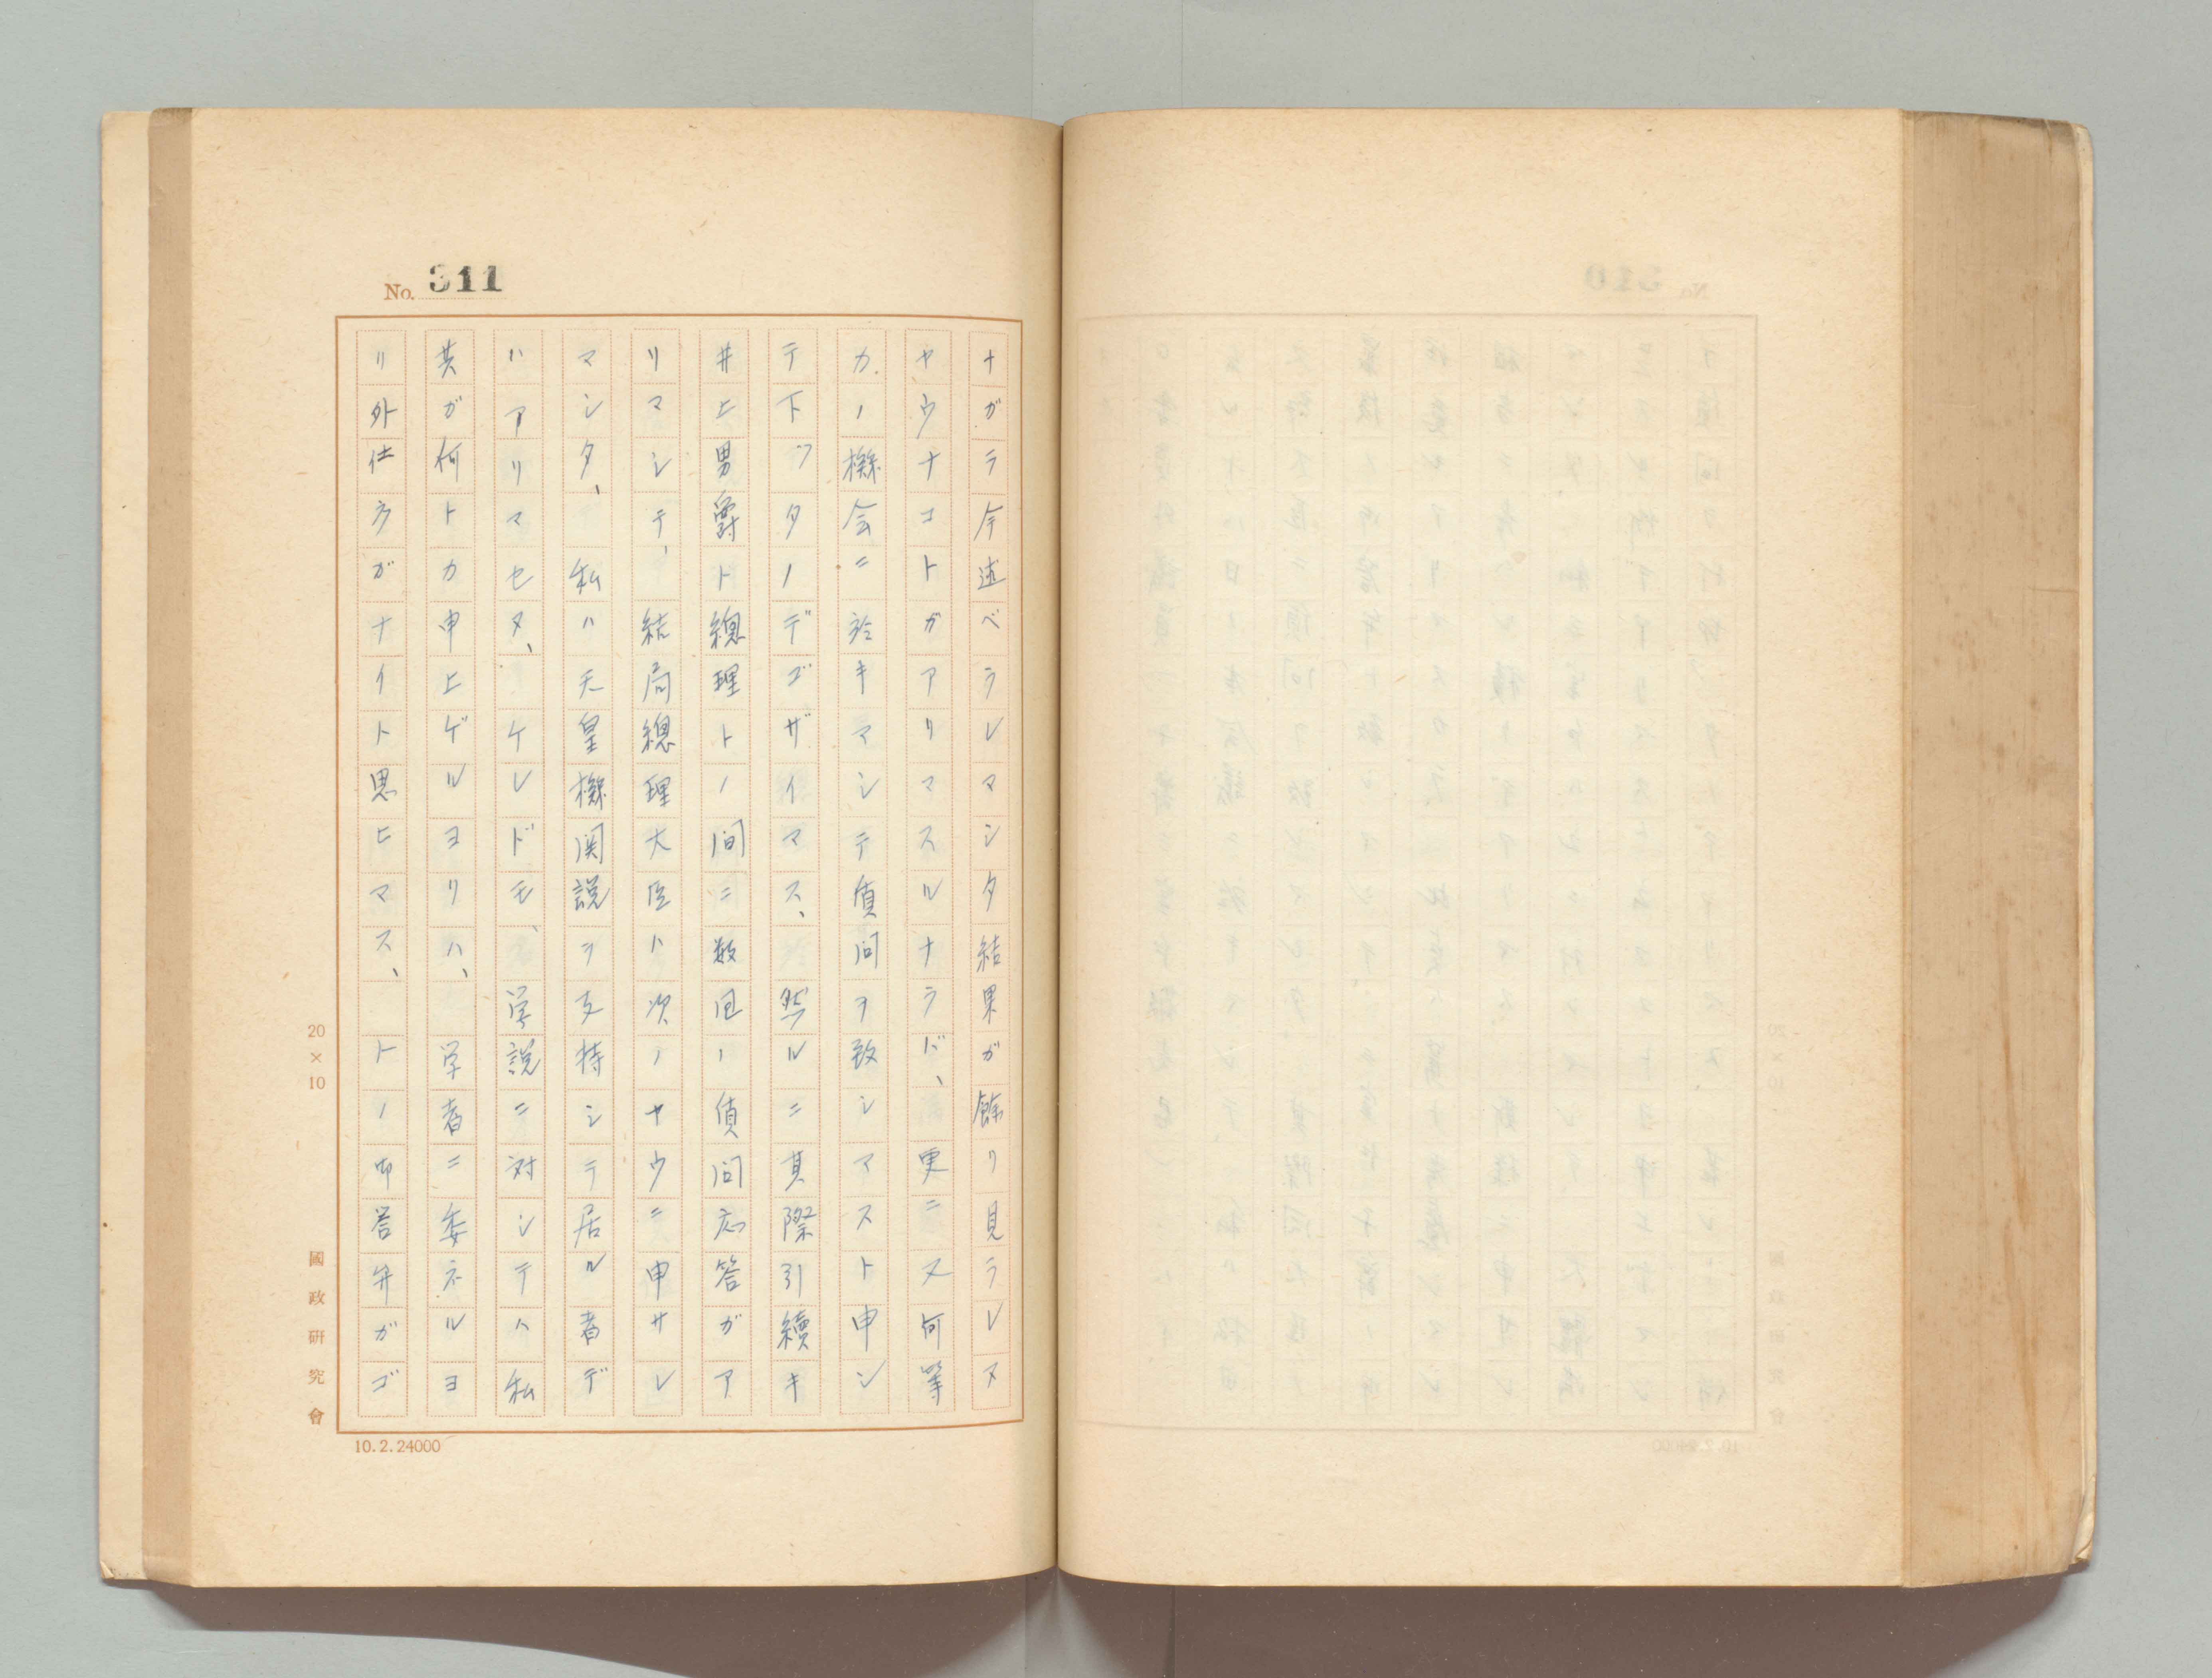 No. 311
ナガラ今述ベラレマシタ結果ガ餘リ見ラレヌ
ヤウナコトガアリマスルナラバ、更ニ又何等
カノ機会ニ於キマシテ質問ヲ致シマスト申シ
テ下ツタノデゴザイマス、然ルニ其際引續キ
井上男爵ト總理トノ間ニ数回ノ質問応答ガア
リマシテ、結局總理大臣ハ次ノヤウニ申サレ
マシタ、私ハ天皇機関説ヲ支持シテ居ル者デ
ハアリマセヌ、ケレドモ、学説ニ対シテハ私
共ガ何トカ申上ゲルヨリハ、学者ニ委ネルヨ
リ外仕方ガナイト思ヒマス、トノ御答弁ガゴ
20×10
國政研究會
10.2.24000